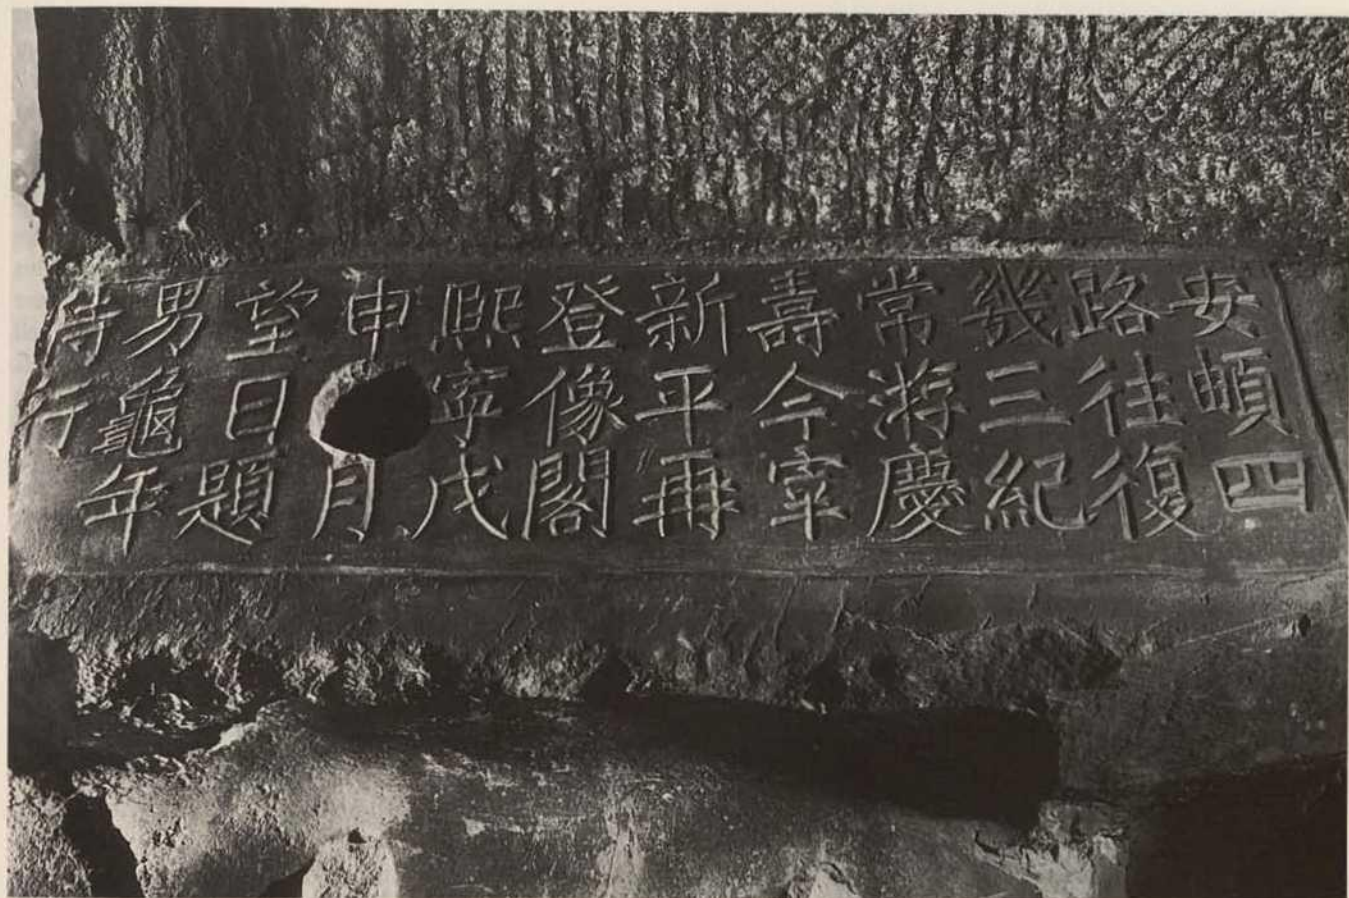 安頔四
路往復
幾三紀
常游慶
壽今宰
新平再
登像閣
熙寧戊
申月
望日題
男龜年
侍行